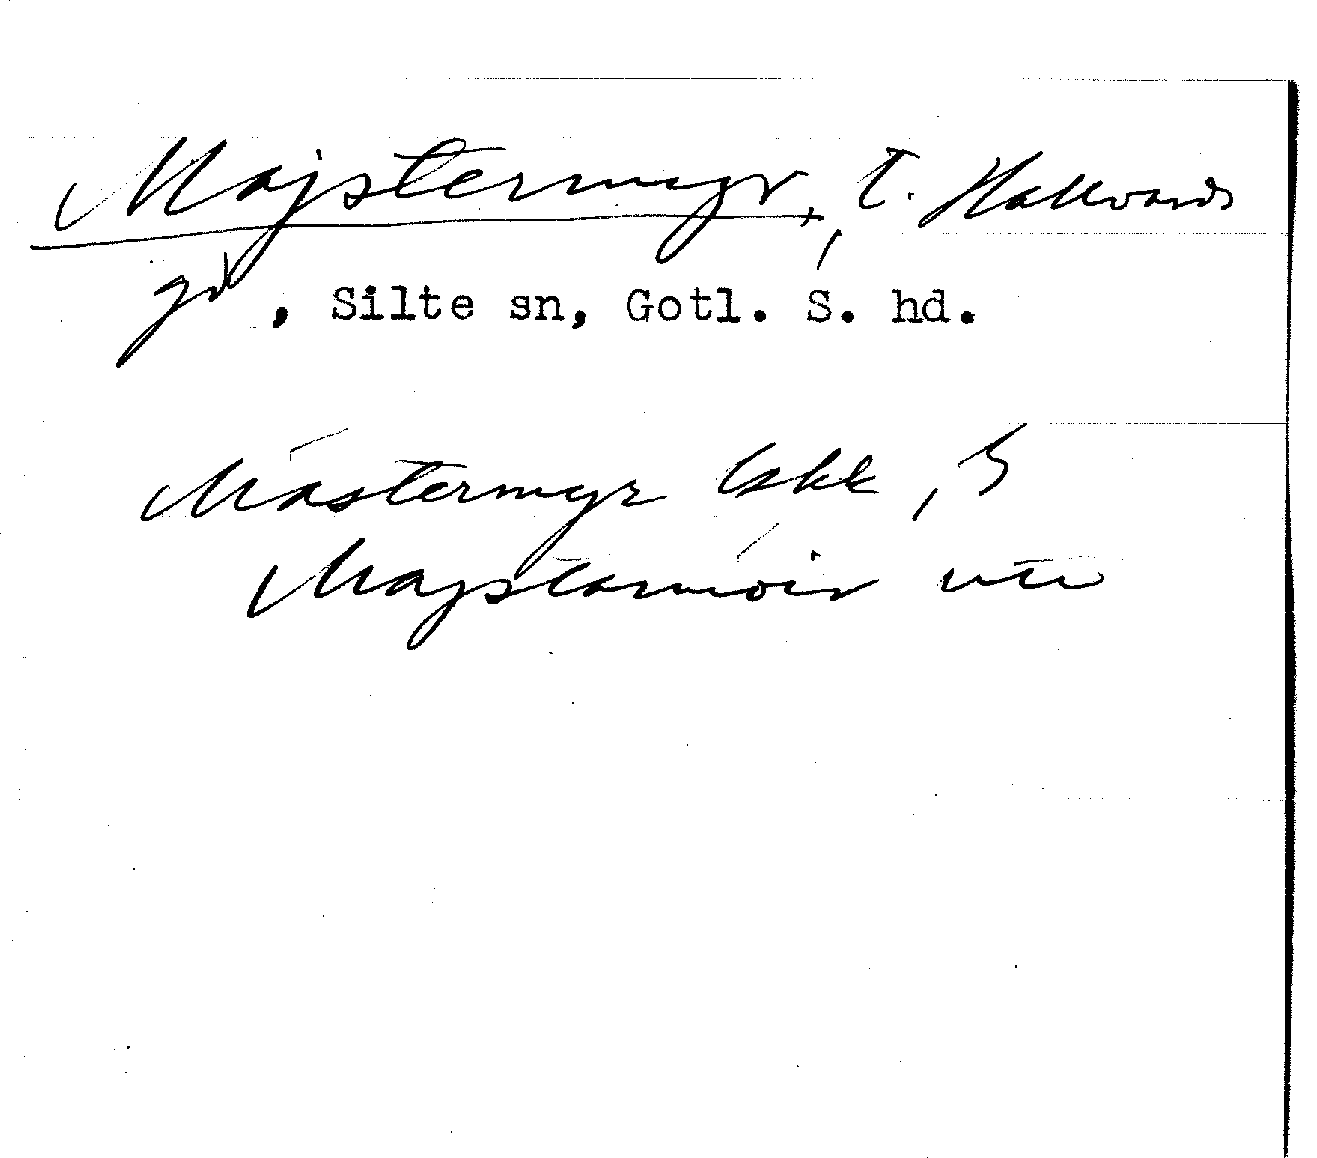 Majstermyr, t. Hallvards
gd, Silte sn, Gotl. S. hd.
Mästermyr Gskk, S
Majstarmöir utt